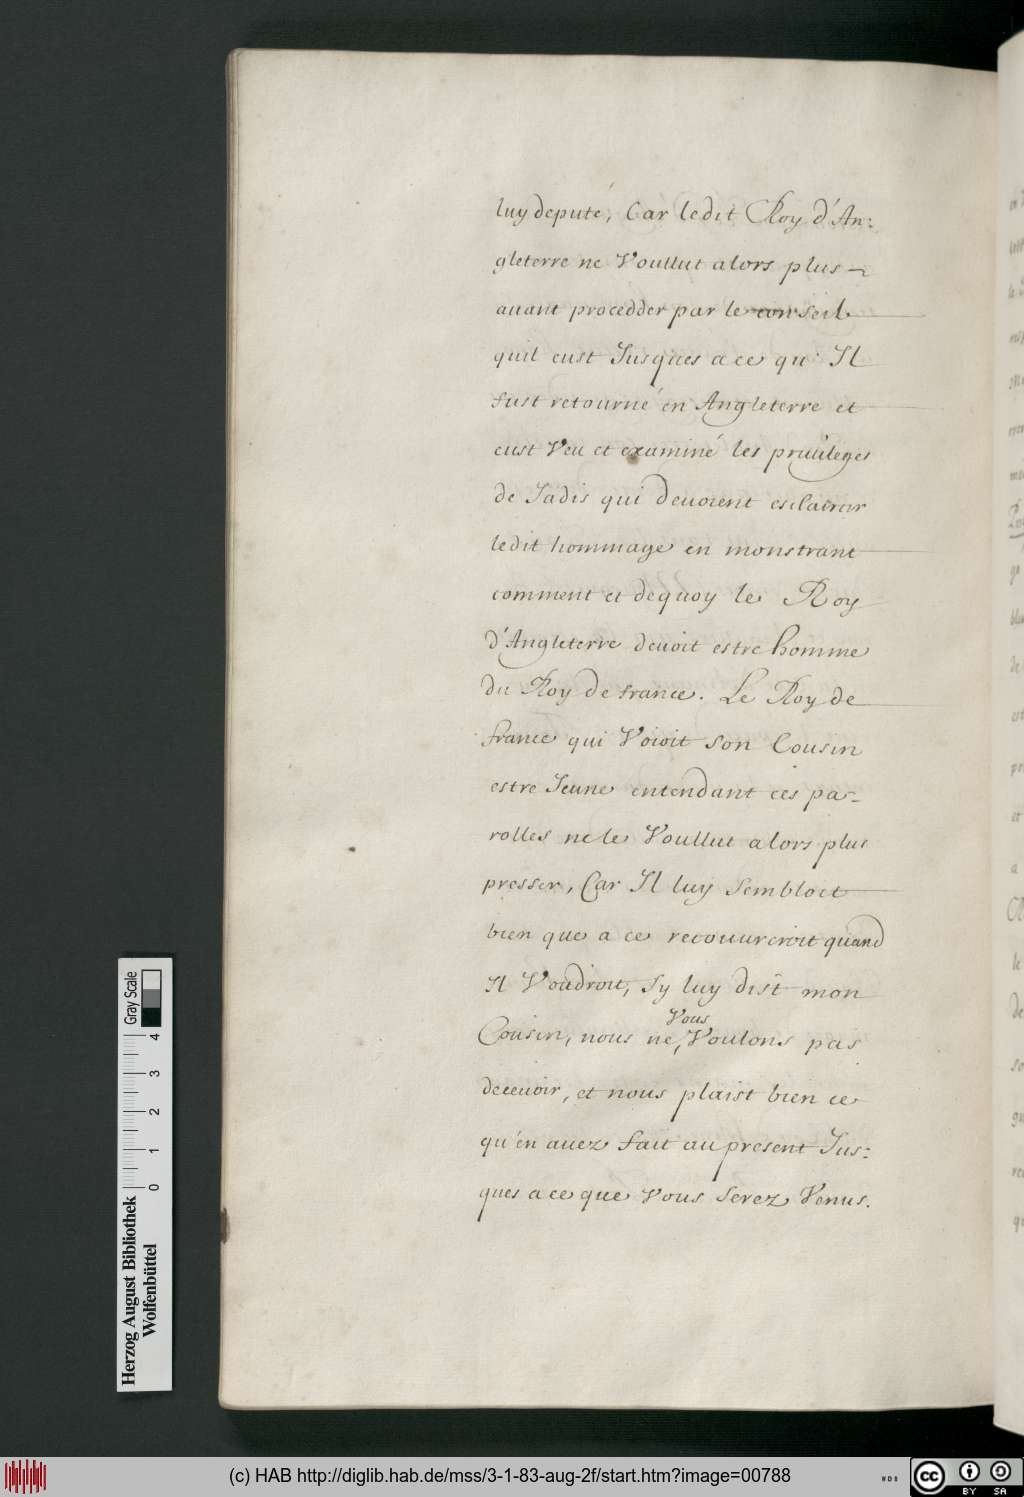 luy deputé, Car ledit Roy d'An:
gleterre ne Voullut alors plus
auant procedder par le conseil
quil eust Jusques a ce qu'Il
fust retourné en Angleterre et
eust Veu et examiné les priuileges
de Jadis qui deuoient esclaircir
ledit hommage en monstrant
comment et dequoy le Roy
d'Angleterre deuoit estre homme
du Roy de france. Le Roy de
france qui Voioit son Cousin
estre Jeune entendant ces pa-
rolles ne le Voullut alors plus
presser, Car Il luy sembloit
bien que a ce recouureroit quand
Il Voudroit, Sy luy dist mon
Cousin, nous ne Vous Voulons pas
deceuoir, et nous plaist bien ce
qu'en auez fait au present Jus:
ques a ce que Vous serez Venus.
Gray Scale
0 1 2 3 4
Herzog August Bibliothek
Wolfenbüttel
(c) HAB http://diglib.hab.de/mss/3-1-83-aug-2f/start.htm?image=00788
WDB
cc BY SA